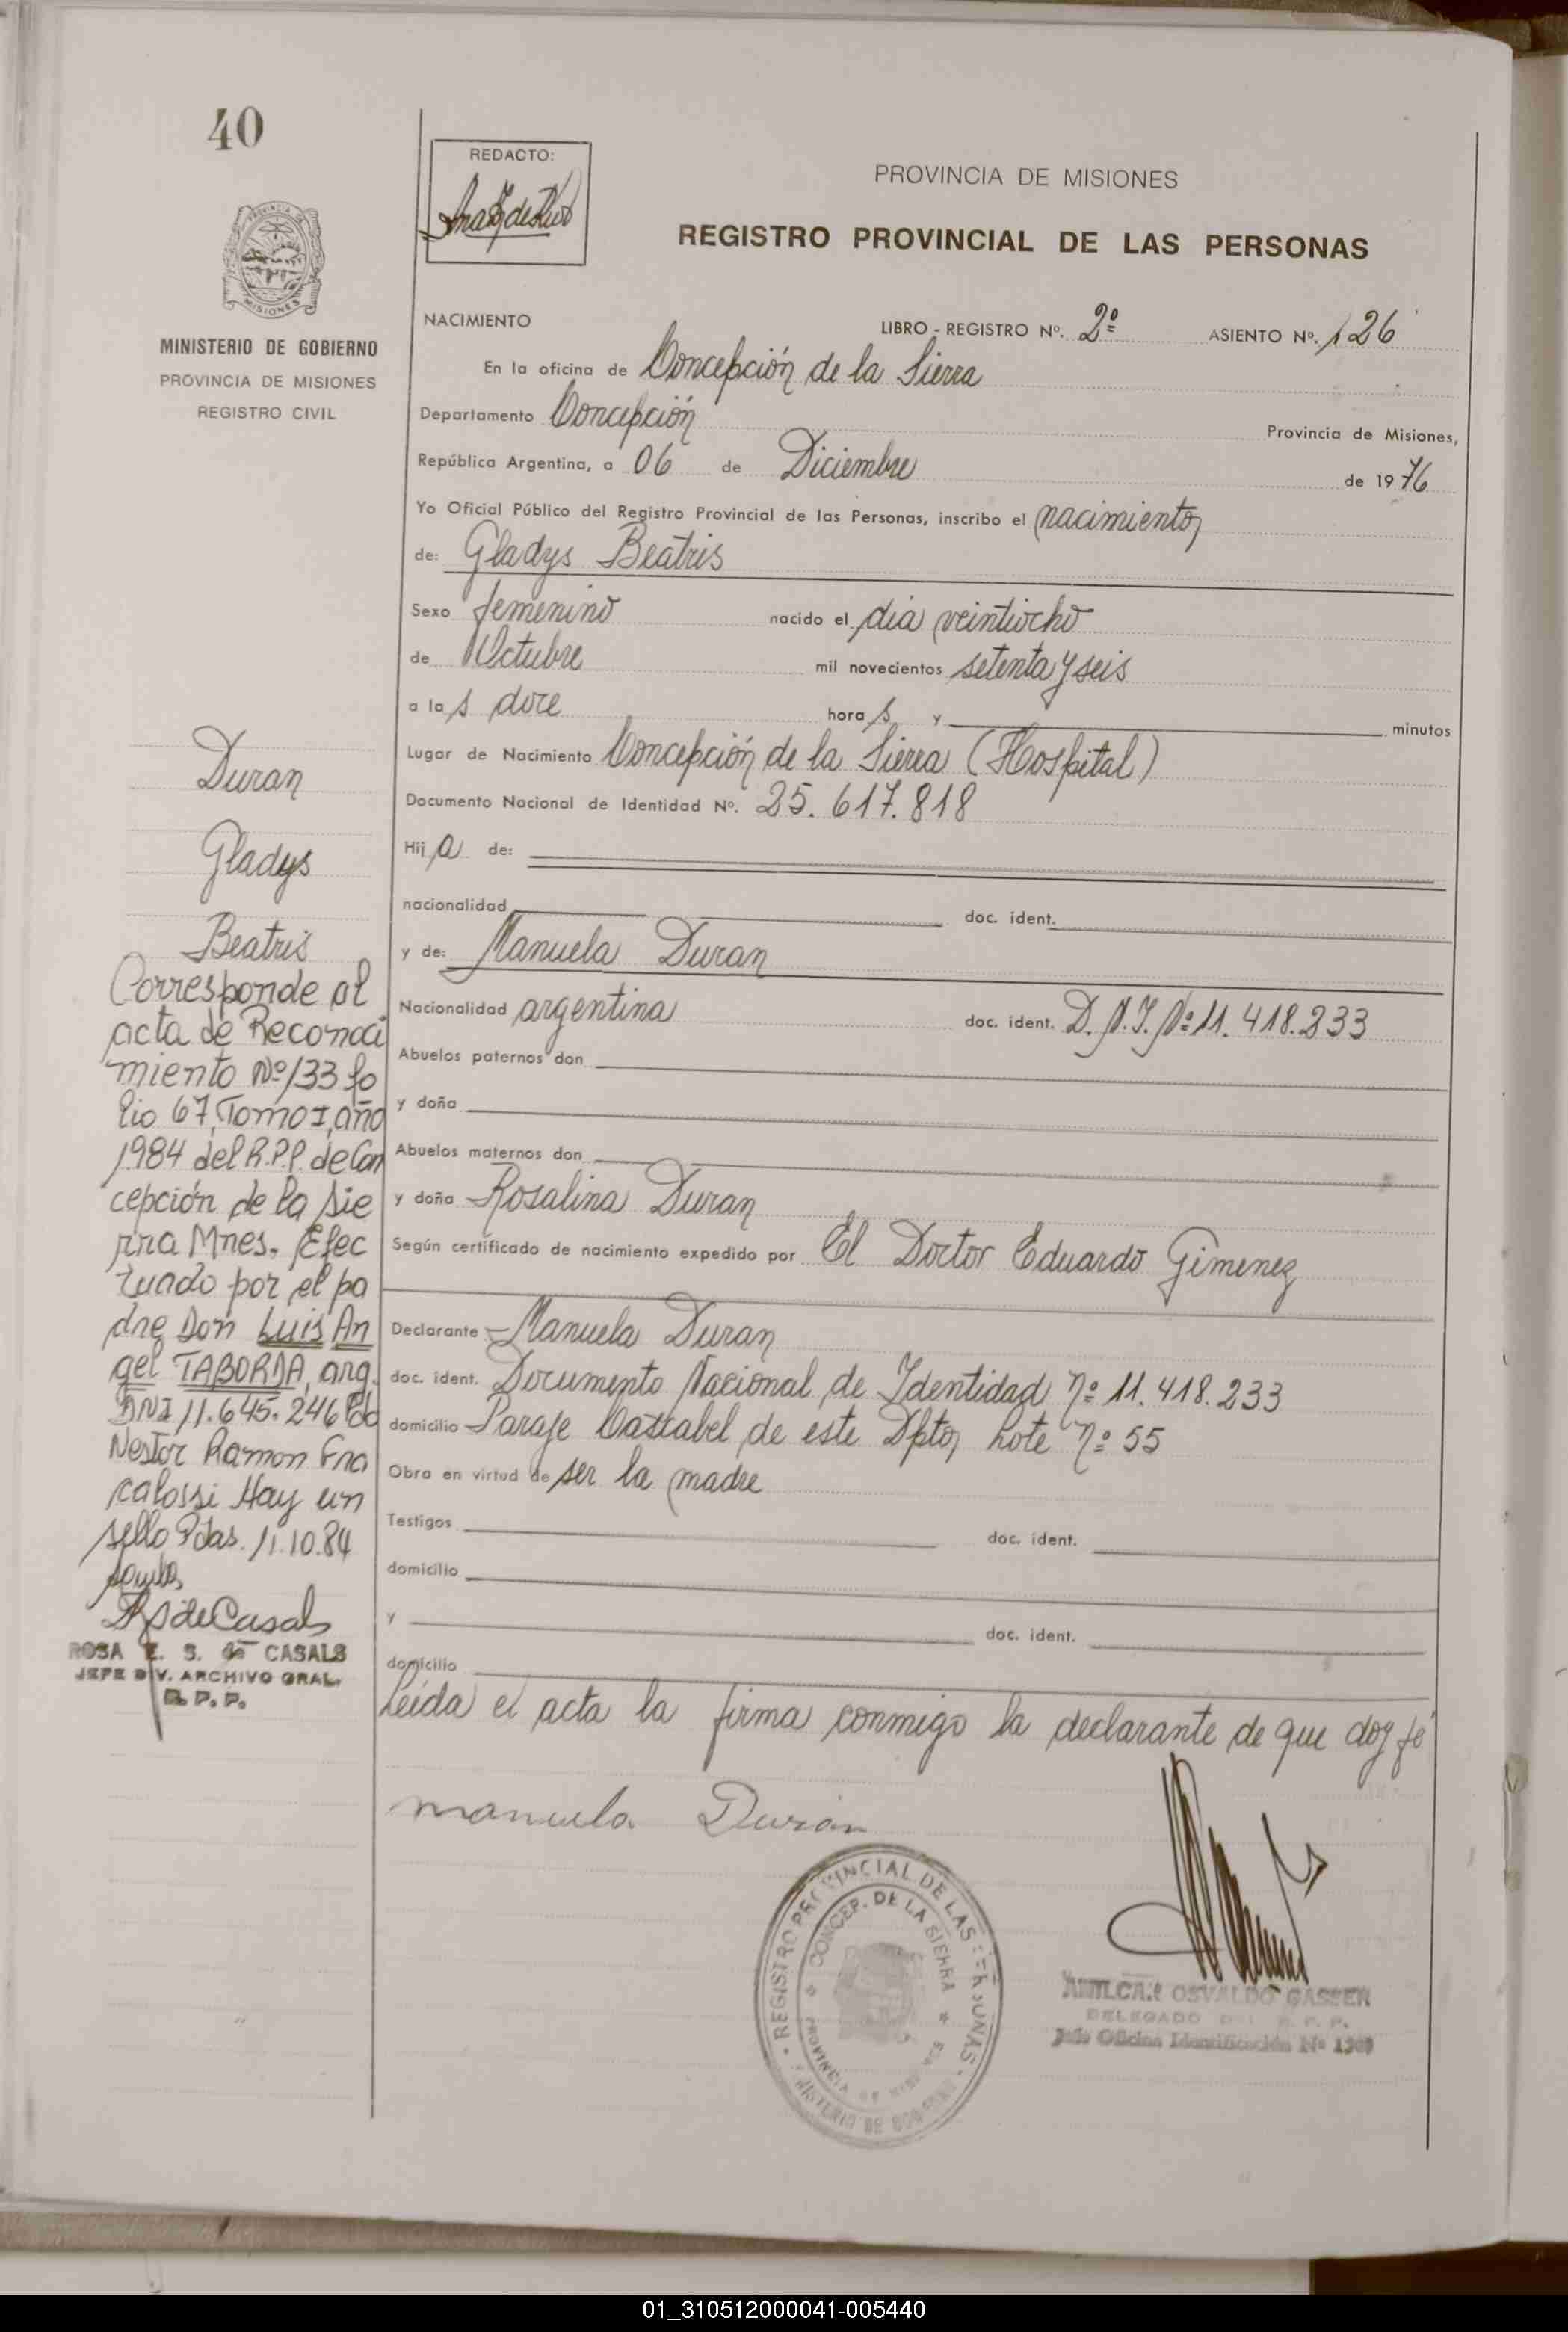 40
REDACTO:
PROVINCIA DE MISIONES
REGISTRO PROVINCIAL DE LAS PERSONAS
PROVINCIA DE
MISIONES
MINISTERIO DE GOBIERNO
PROVINCIA DE MISIONES
REGISTRO CIVIL
NACIMIENTO LIBRO - REGISTRO Nº. 2º ASIENTO Nº. 126
En la oficina de Concepción de la Sierra
Departamento Concepción Provincia de Misiones,
República Argentina, a 06 de Diciembre de 1976
Yo Oficial Público del Registro Provincial de las Personas, inscribo el nacimiento
de: Gladys Beatris
Sexo femenino nacido el dia veintiocho
de Octubre mil novecientos setenta y seis
a las doce horas y minutos
Lugar de Nacimiento Concepción de la Sierra (Hospital)
Documento Nacional de Identidad Nº. 25.617.818
Hija de:
nacionalidad doc. ident.
y de: Manuela Duran
Nacionalidad argentina doc. ident. D.N.I. Nº 11.418.233
Abuelos paternos don
y doña
Abuelos maternos don
y doña Rosalina Duran
Según certificado de nacimiento expedido por El Doctor Eduardo Gimenez
Declarante Manuela Duran
doc. ident. Documento Nacional de Identidad nº 11.418.233
domicilio Paraje Cascabel de este Dpto, Lote nº 55
Obra en virtud de ser la madre
Testigos doc. ident.
domicilio
y doc. ident.
domicilio
Leida el acta la firma conmigo la declarante de que doy fé
Manuela Duran
Duran
Gladys
Beatris
Corresponde al
acta de Reconoci
miento Nº 133 fo
lio 67, Tomo I, año
1984 del R.P.P. de Con
cepción de la Sie
rra Mnes. Efec
tuado por el pa
dre Don Luis An
gel TABORDA, arg.
DNI 11.645.246 Fdo
Nestor Ramon Fra
calossi Hay un
sello Pdas. 11.10.84
ROSA E. S. de CASALS
JEFE DIV. ARCHIVO GRAL.
R. P. P.
REGISTRO PROVINCIAL DE LAS PERSONAS
CONCEP. DE LA SIERRA
PROVINCIA DE MISIONES
MINISTERIO DE GOBIERNO
AMILCAR OSVALDO GASSER
DELEGADO DEL R. P. P.
Jefe Oficina Identificación Nº 1300
01_310512000041-005440